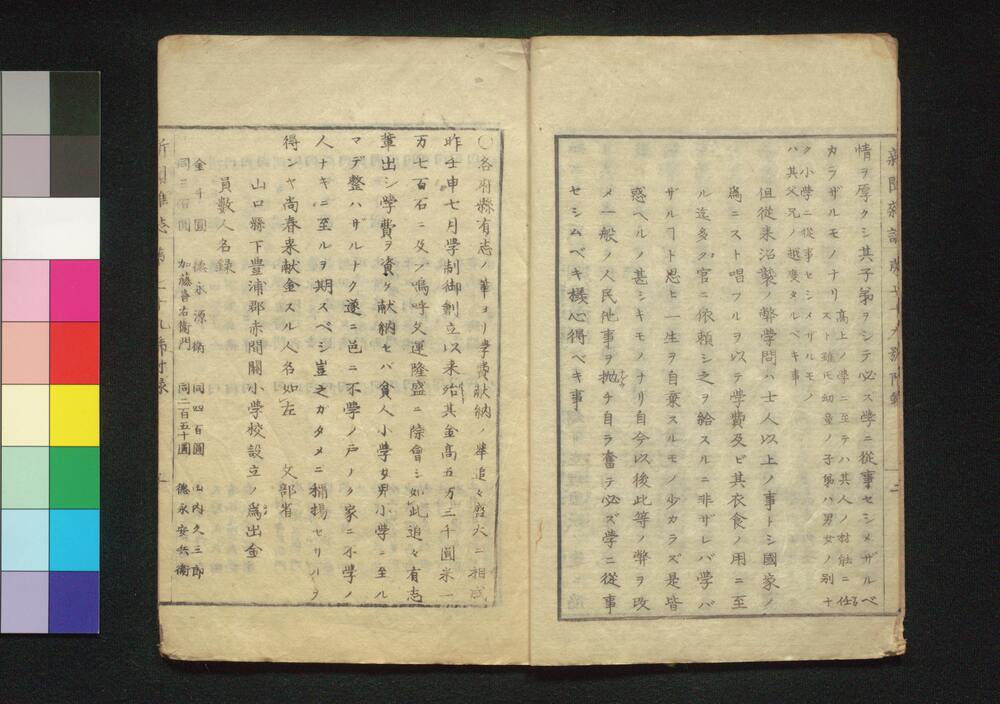 情ヲ厚クシ其子弟ヲシテ必ズ學ニ從事セシメザルベ
カラザルモノナリ
高上ノ學ニ至テハ其人ノ材能ニ任
スト雖モ幼童ノ子弟ハ男女ノ別ナ
ク小學ニ從事セシメザルモノ
ハ其父兄ノ越度タルベキ事
但從来沿襲ノ弊學問ハ士人以上ノ事トシ國家ノ
為ニスト唱フルヲ以テ學費及ビ其衣食ノ用ニ至
ル迄多ク官ニ依頼シ之ヲ給スルニ非ザレバ學バ
ザルヿト思ヒ一生ヲ自棄スルモノ少カラズ是皆
惑ヘルノ甚シキモノナリ自今以後此等ノ弊ヲ改
メ一般ノ人民他事ヲ抛チ自ラ奮テ必ズ學ニ從事
セシムベキ様心得ベキ事
○各府縣有志ノ輩ヨリ學費献納ノ擧追々盛大ニ相成
昨壬申七月学制御創立以来殆其金高五万三千圓米一
万七百石ニ及ブ嗚呼文運隆盛ニ際會シ如此追々有志
輩出シ學費ヲ資ケ献納セハ貧人小學女児小學ニ至ル
マデ整ハザルナク遂ニ邑ニ不學ノ戸ノク家ニ不學ノ
人ナキニ至ルヲ期スベシ豈之ガタメニ稱揚セザルヲ
得ンヤ尚春来献金スル人名如左　文部省
山口縣下豊浦郡赤間關小学校設立ノ爲出金
員數人名録
金千圓　德永源衛　同四百圓　山内久三郎
同三百圓　加藤喜右衛門　同二百五十圓　德永安兵衛
新聞雜誌　第